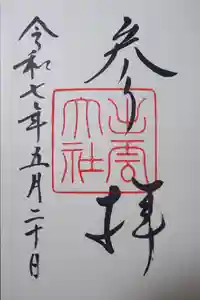 参り拝
出雲大社
令和七年五月二十日